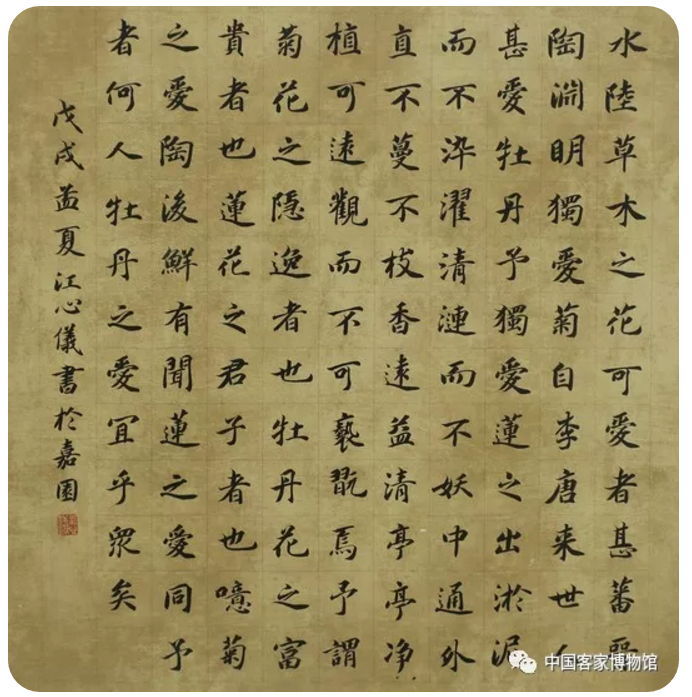 水陸草木之花可愛者甚蕃晉
陶淵明獨愛菊自李唐来世人
甚愛牡丹予獨愛蓮之出淤泥
而不染濯清漣而不妖中通外
直不蔓不枝香遠益清亭亭净
植可遠觀而不可褻翫焉予謂
菊花之隱逸者也牡丹花之富
貴者也蓮花之君子者也噫菊
之愛陶後鮮有聞蓮之愛同予
者何人牡丹之愛宜乎眾矣
戊戌孟夏江心儀書於嘉園
中国客家博物馆